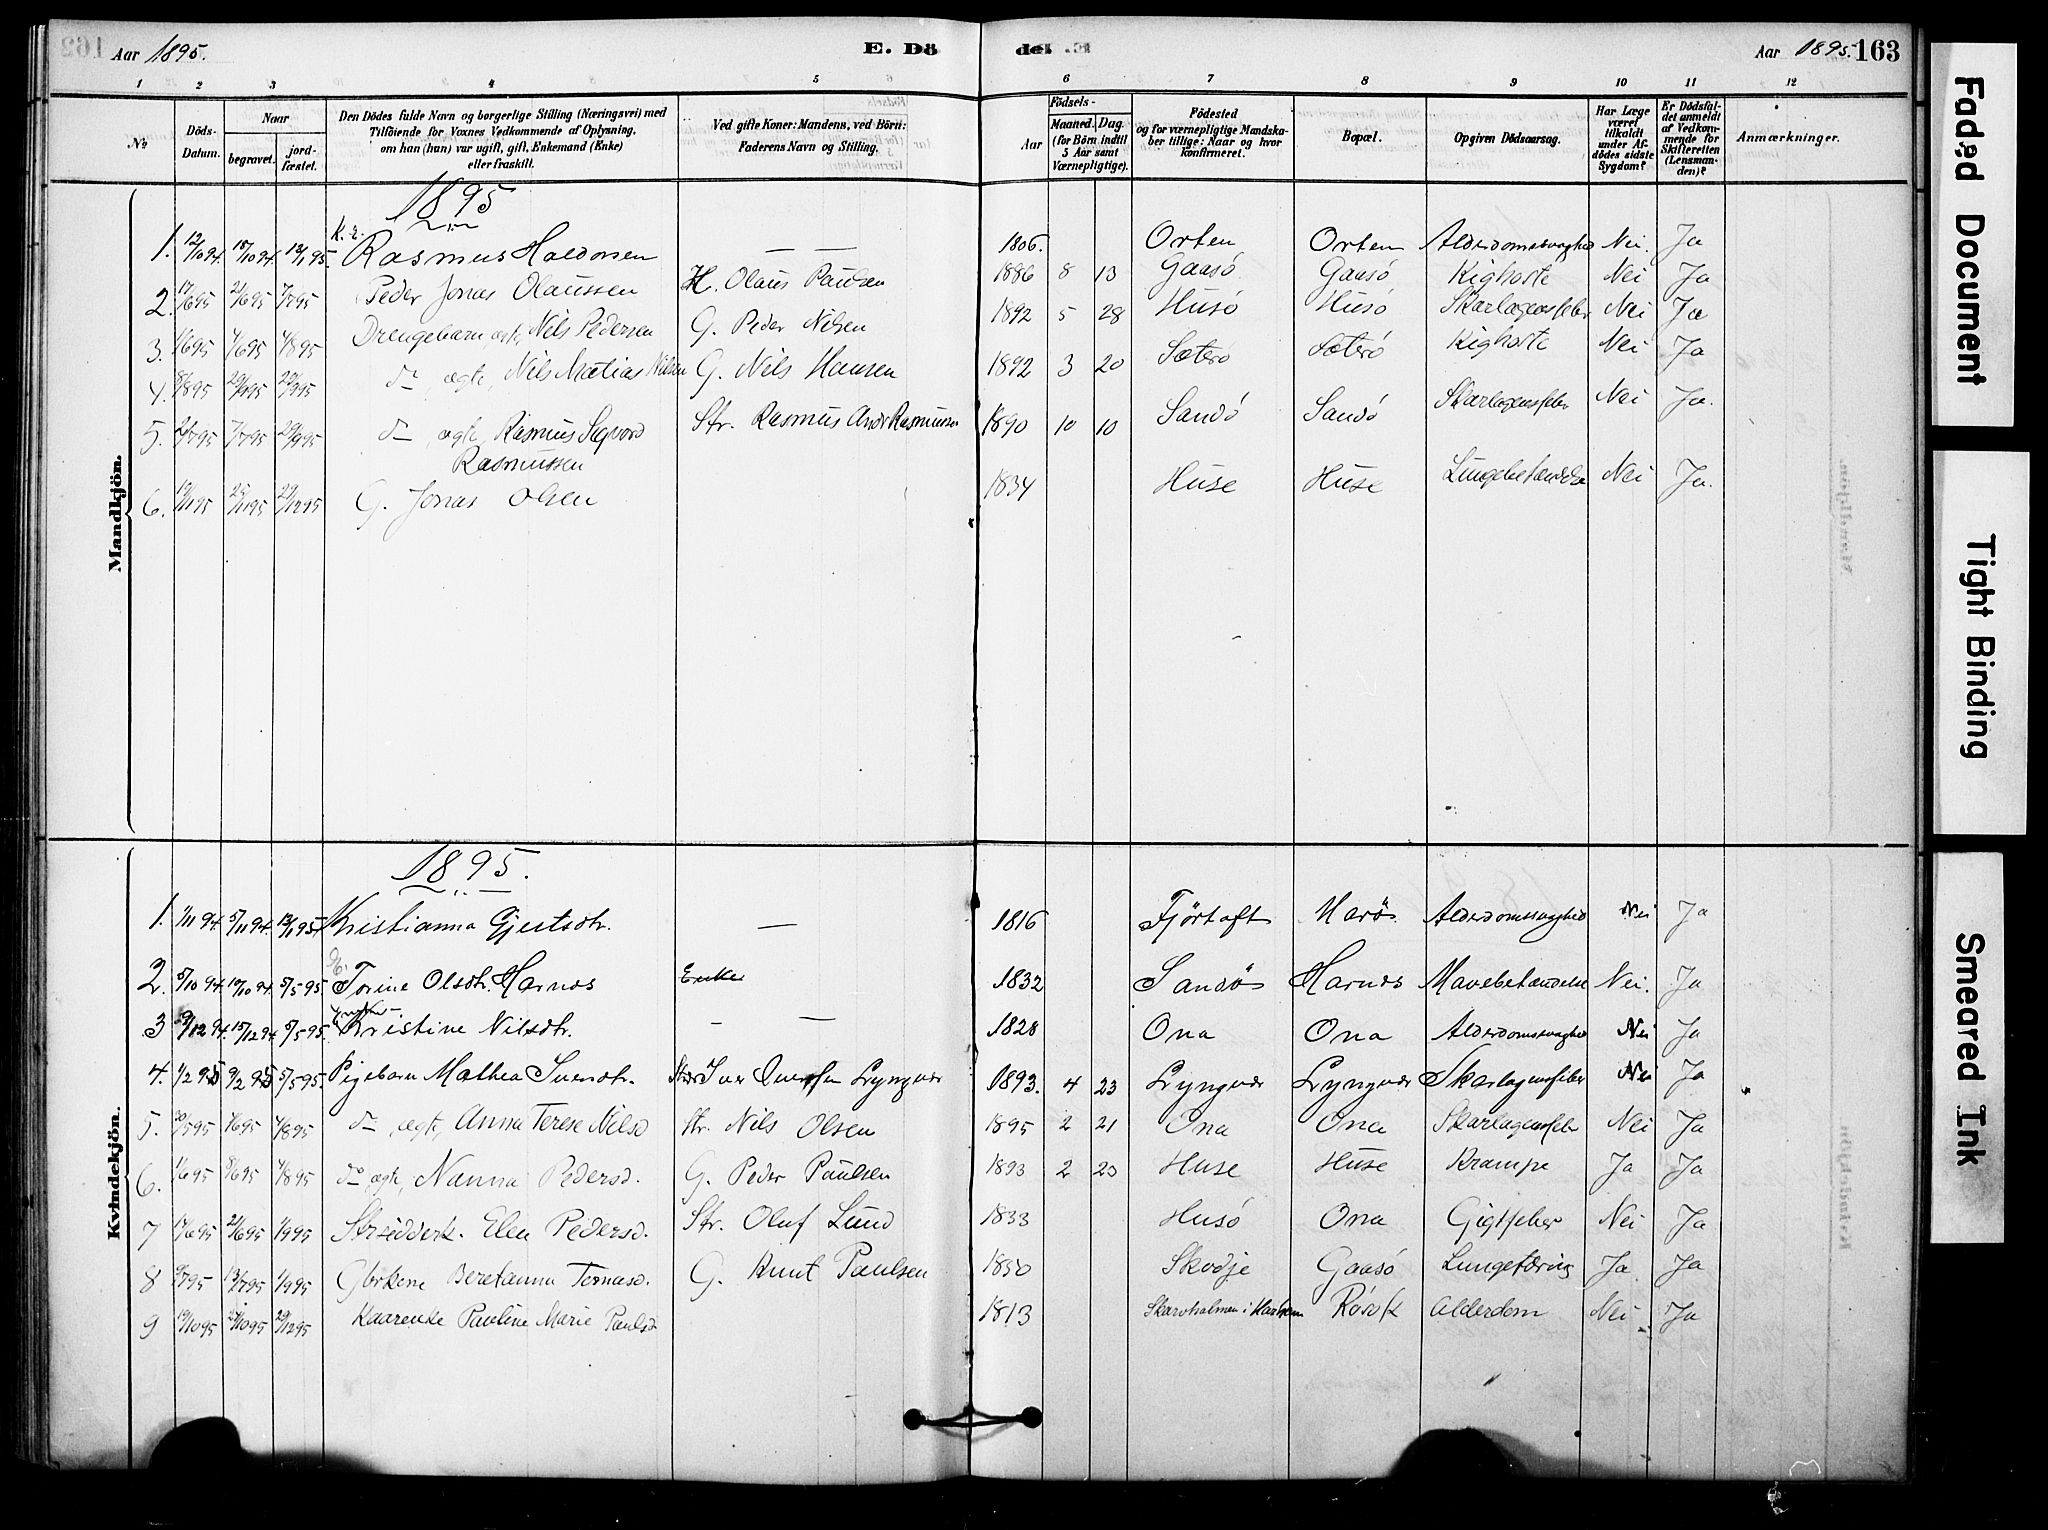 Aar 1895.
E. Dö
del
Aar 1895. 163
1 2 3 4 5 6 7 8 9 10 11 12
№
Döds-Datum.
Naar
begravet.
jordfæstet.
Den Dödes fulde Navn og borgerlige Stilling (Næringsvei) med Tilföiende for Voxnes Vedkommende af Oplysning, om han (hun) var ugift, gift, Enkemand (Enke) eller fraskilt.
Ved gifte Koner: Mandens, ved Börn: Faderens Navn og Stilling.
Aar
Födsels-
Maaned. Dag.
(for Börn indtil 5 Aar samt Værnepligtige).
Födested og for værnepligtige Mandskaber tillige: Naar og hvor konfirmeret.
Bopæl.
Opgiven Dödsaarsag.
Har Læge været tilkaldt under Afdödes sidste Sygdom?
Er Dödsfaldet anmeldt af Vedkommende for Skifteretten (Lensmanden)?
Anmærkninger.
Mandkjön.
1895
1. 12/10 94. 18/10 94. 12/1 95. Rasmus Haldorsen — — 1806. Orten Orten Alderdomssvaghed Nei. Ja
2. 17/6 95 21/6 95 7/7 95 Peder Jonas Olaussen H. Olaus Paulsen 1886 8 13 Gaasö Gaasö Kighoste Nei Ja
3. 1/6 95 7/6 95 4/8 95 Drengebarn ægte, Nils Pedersen G. Peder Nilsen 1892 5 28 Husö Husö Skarlagensfeber Nei Ja
4. 8/8 95 29/9 95 do ægte, Nils Matias Nilsen G. Nils Hansen 1892 3 20 Sæterö Sæterö Kighoste Nei Ja
5. 7/7 95 29/9 95 do ægte, Rasmus Sigvard Rasmussen Str. Rasmus Andr Rasmussen 1890 10 10 Sandö Sandö Skarlagensfeber Nei Ja.
6. 19/11 95 25/11 95 29/12 95 G. Jonas Olsen 1834 Huse Huse Lungebetændelse Nei Ja.
Kvindekjön.
1895.
1. 1/11 94. 5/11 94. 12/1 95. Kristianna Gjertsdtr. — 1816 Fjörtoft Harö Alderdomssvaghed Nei Ja
2. 5/10 94. 10/10 94. 5/5 95 Torine Olsdtr. Harnes Enke 1832 Sandö Harnes Mavebetændelse Nei. Ja
3 9/12 94. 15/12 94. 5/5 95. Kristine Nilsdtr. - — 1828 Ona Ona Alderdomssvaghed Nei Ja
4. 1/2 95 9/2 95 5/5 95 Pigebarn Mathea Iversdtr. Iver Iversen Lyngvær 1893. 4 23 Lyngvær Lyngvær Skarlagensfeber Nei Ja
5. 30/5 95 1/6 95 4/8 95 do ægte, Anna Terese Nilsd Str. Nils Olsen 1895 2 21 Ona Ona Skarlagensfeber Nei Ja
6. 1/6 95 8/6 95 4/8 95 do ægte, Nanna Pedersd. G. Peder Paulsen 1893 2 23 Huse Huse Krampe Ja Ja
7 17/6 95 21/6 95 1/9 95 Elen Pedersd. Str. Oluf Lund 1833 Husö Ona Gigtfeber Nei Ja
8 9/7 95 13/7 95 1/9 95 Gbrkone Beretanna Tomasd. G. Knut Paulsen 1850 Skodje Gaasö Lungetæring Ja Ja
9 19/10 95 10 95 29/12 95 Kaarenke Pauline Marie Paulsd 1813 Skarvholmen i Rösok Alderdom Nei Ja
Faded Document
Tight Binding
Smeared Ink